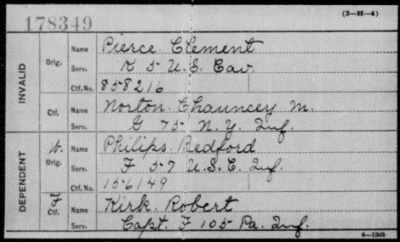 178349
(3—H—4)
INVALID
Orig. Name Pierce Clement
Serv. K 5 U.S. Cav.
Ctf.No. 858216
Ctf. Name Norton Chauncey M.
Serv. G 75 N.Y. Inf.
DEPENDENT
W. Orig. Name Philips Bedford
Serv. F 57 U.S.C. Inf.
Ctf.No. 156149
F Ctf. Name Kirk Robert
Serv. Capt. F 105 Pa. Inf.